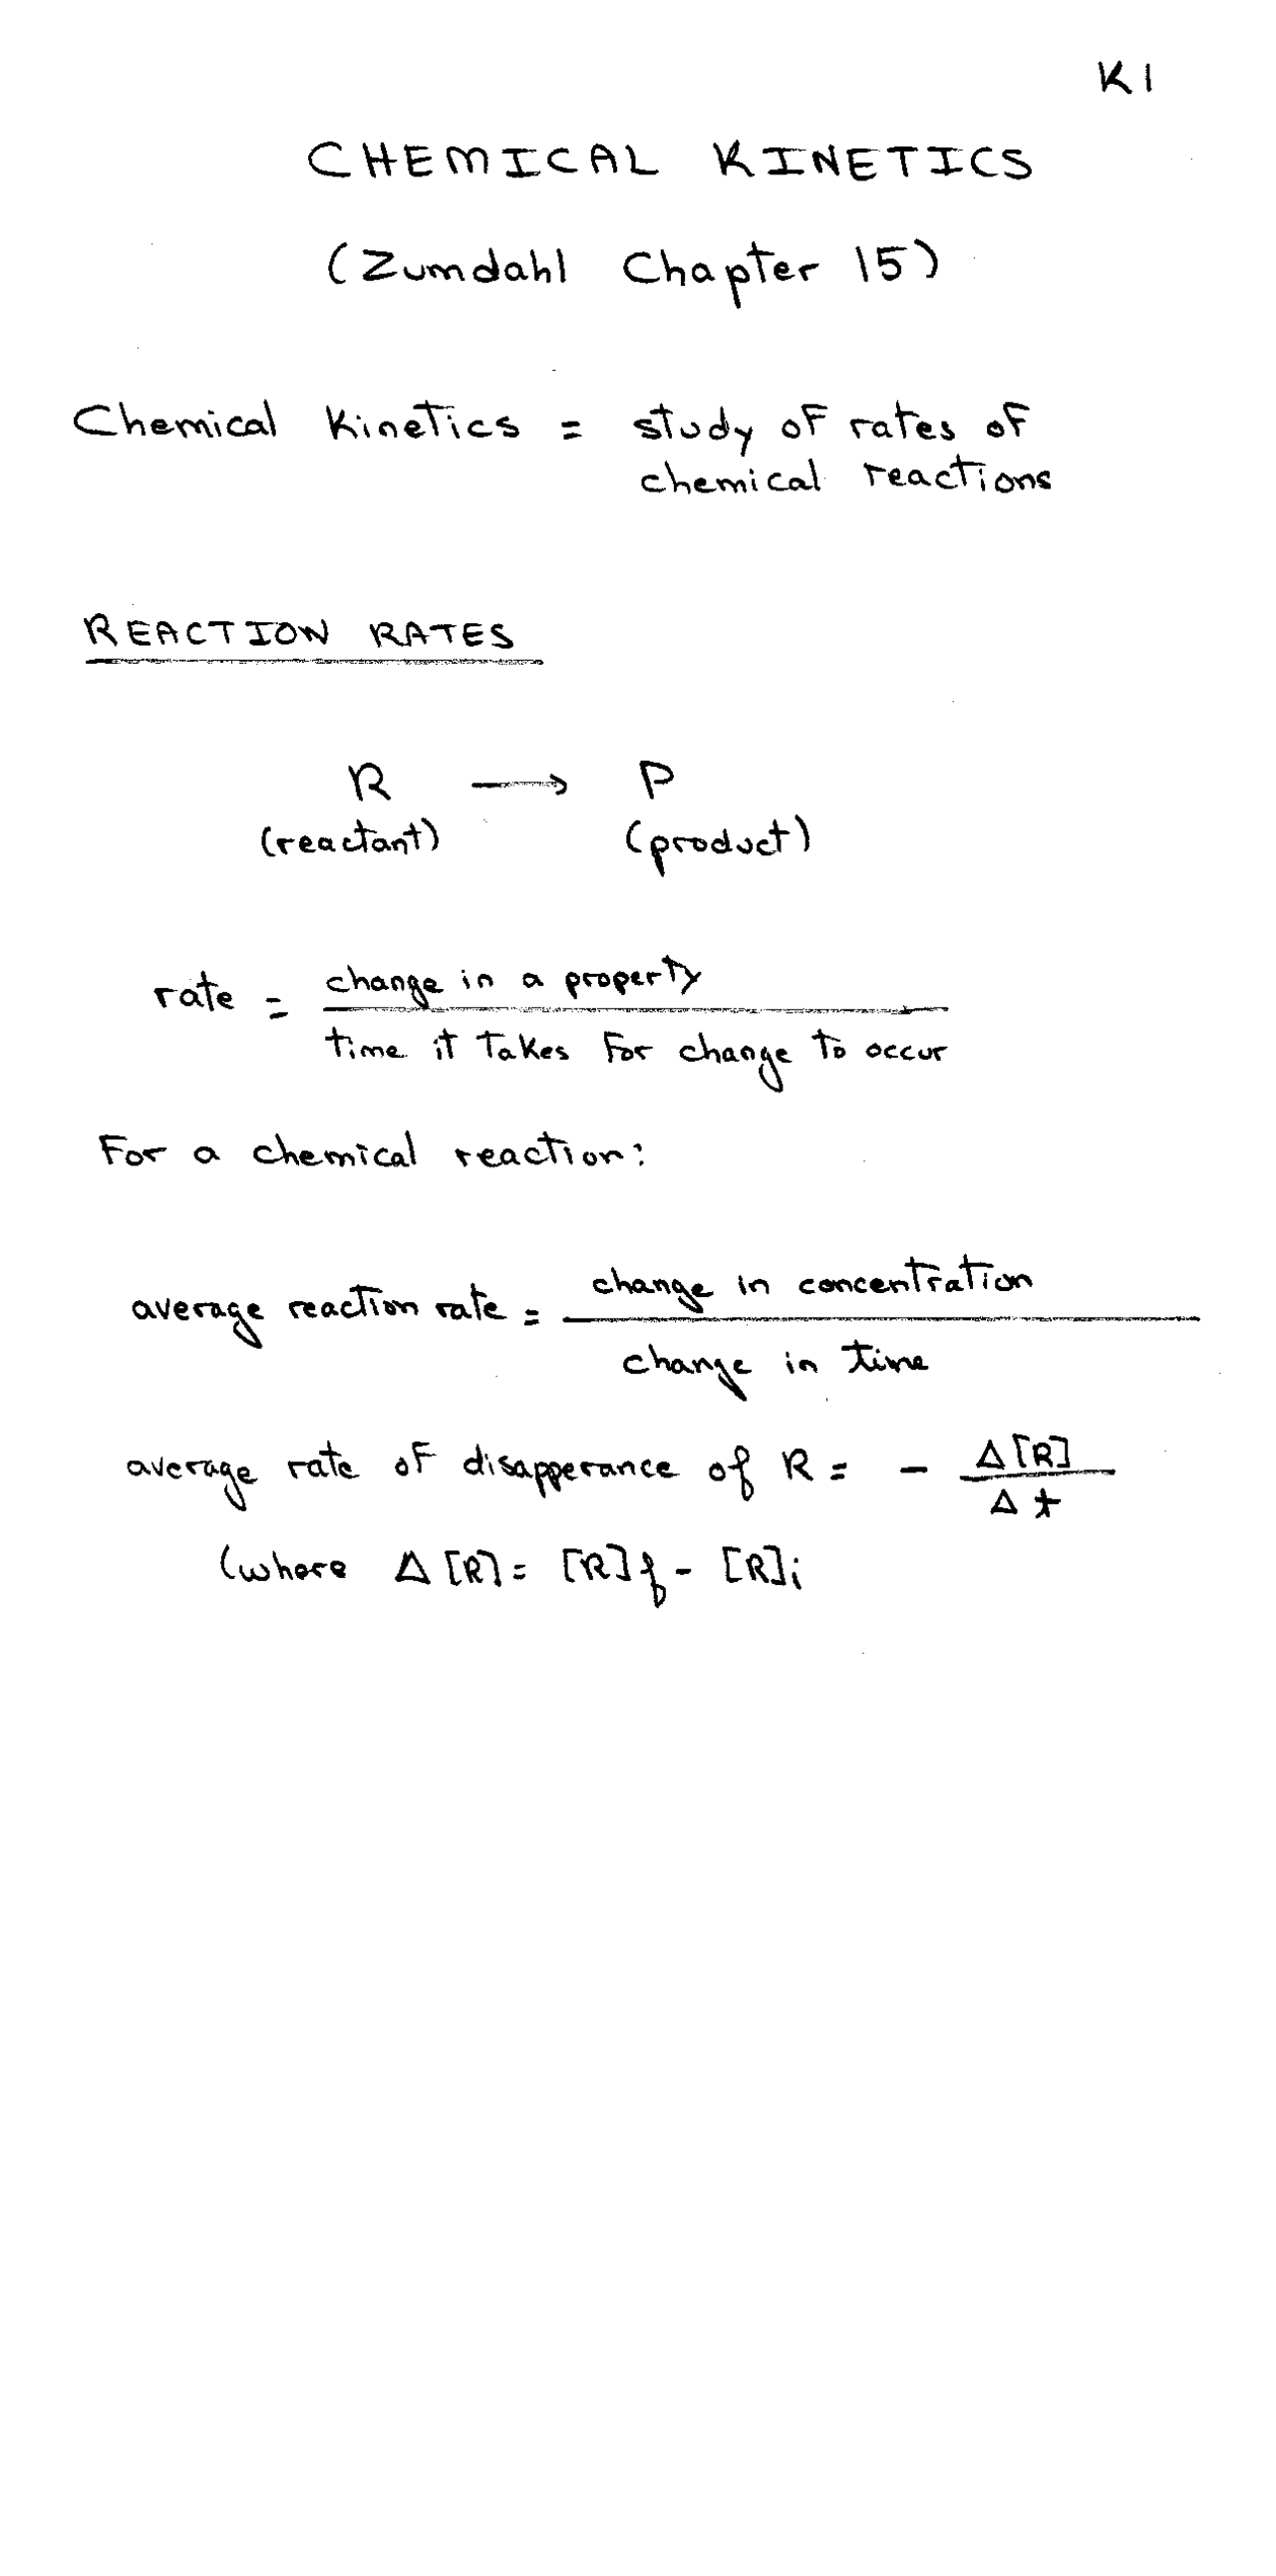 K1
CHEMICAL KINETICS
(Zumdahl Chapter 15)
Chemical Kinetics = study of rates of
chemical reactions
REACTION RATES
R → P
(reactant) (product)
rate = change in a property
time it takes for change to occur
For a chemical reaction:
average reaction rate = change in concentration
change in time
average rate of disapperance of R = - Δ[R]
Δt
(where Δ[R] = [R]f - [R]i